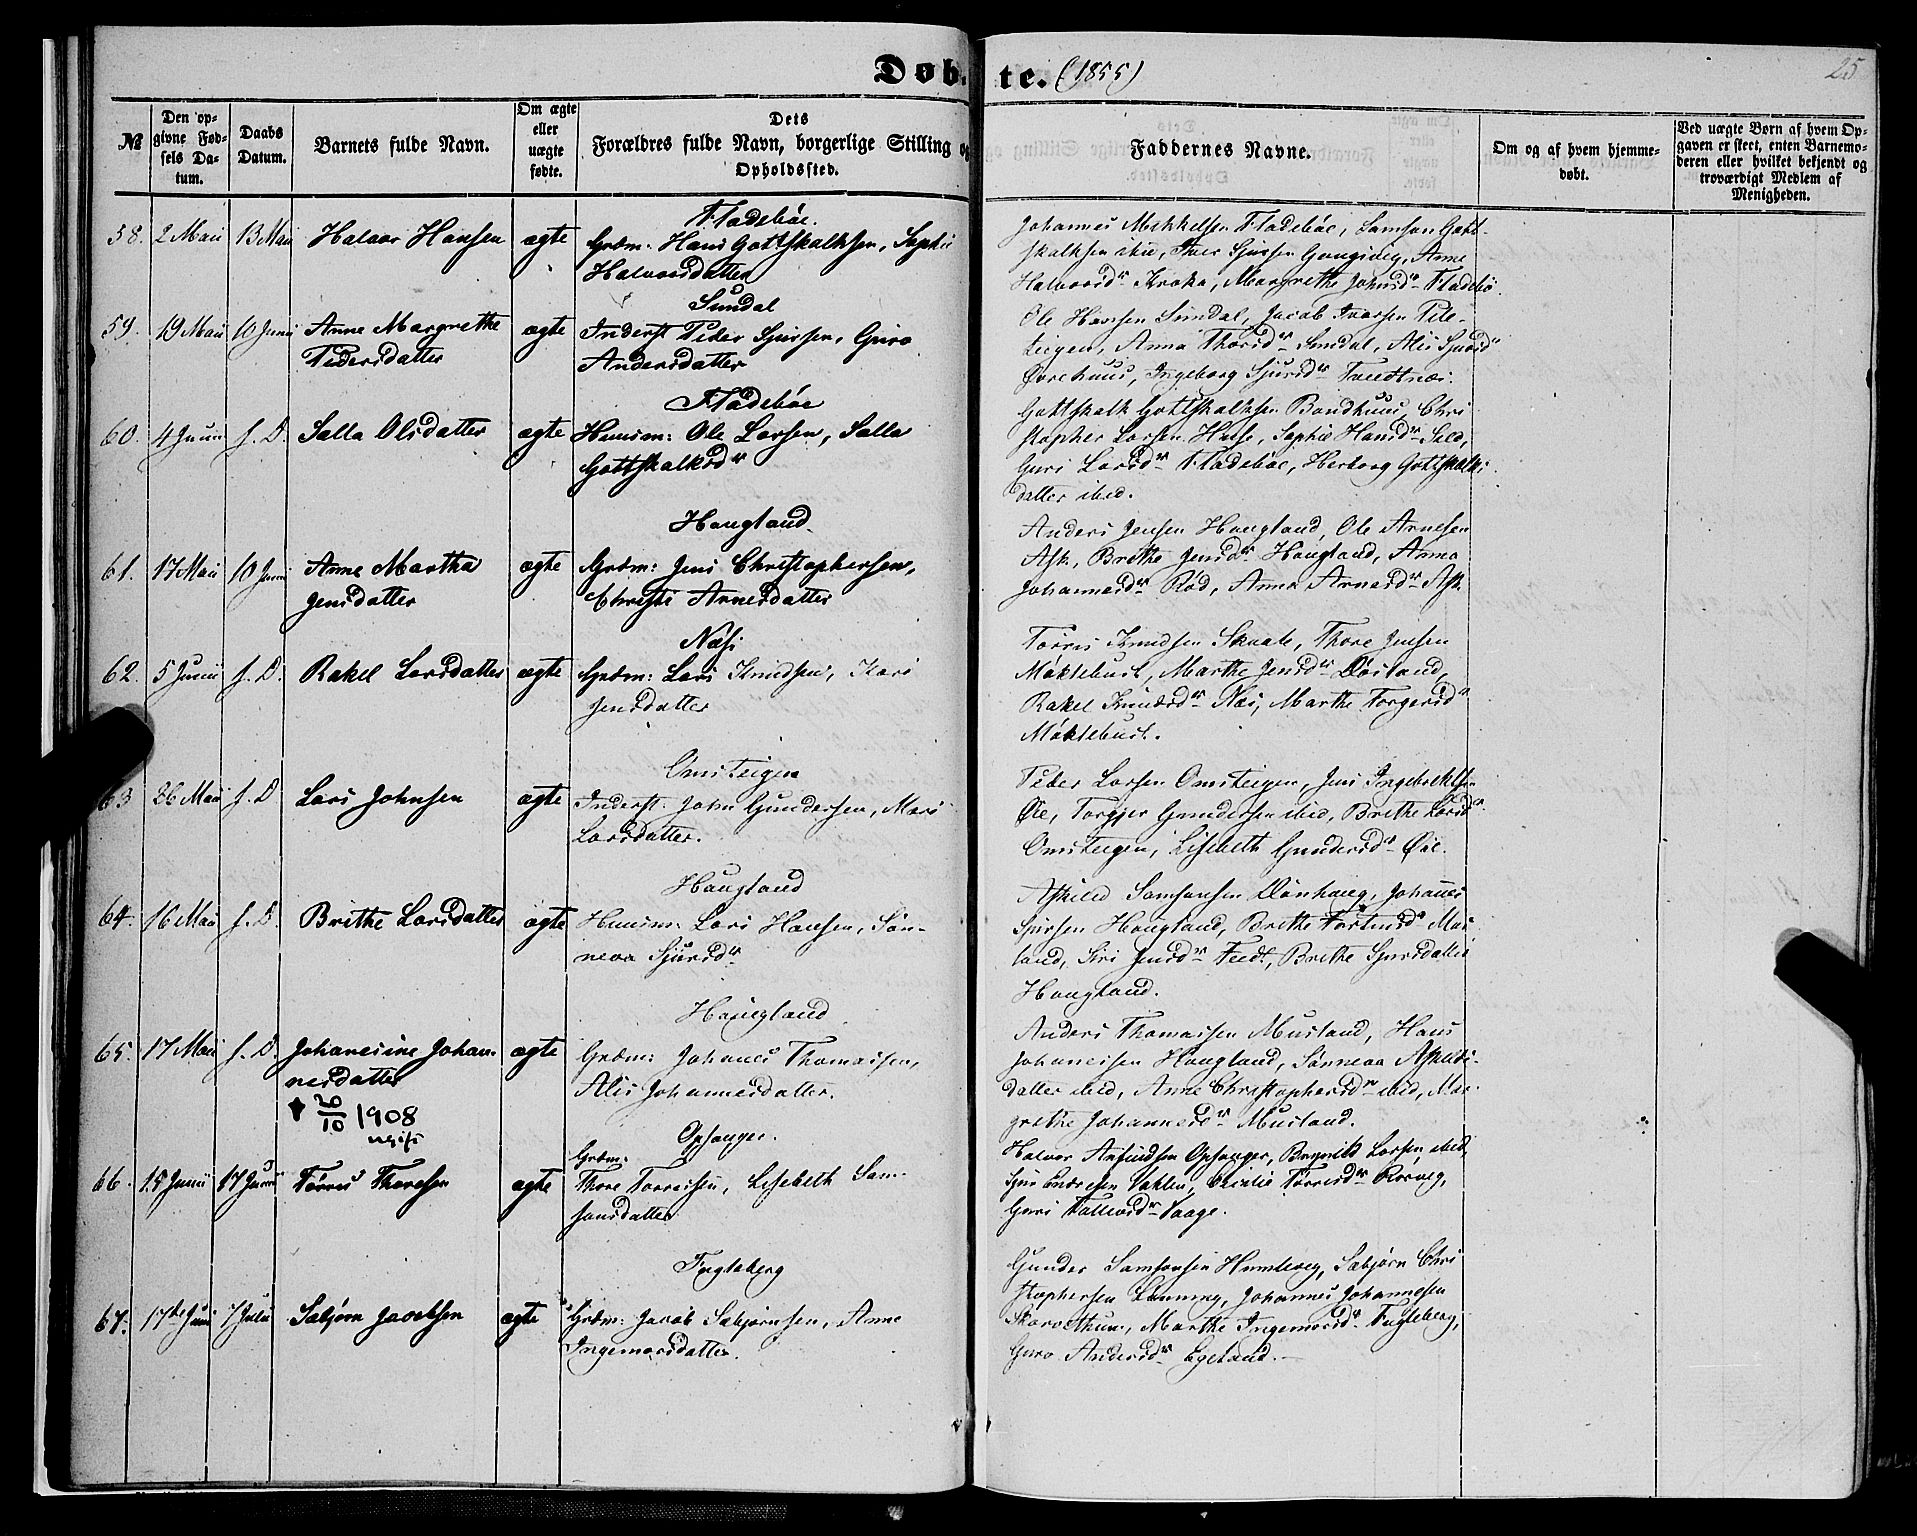 Døb-te. (1855)
25
№
Den op-
givne Fød-
sels Da-
tum.
Daabs
Datum.
Barnets fulde Navn.
Om ægte
eller
uægte
fødte.
Dets
Forældres fulde Navn, borgerlige Stilling og
Opholdssted.
Faddernes Navne.
Om og af hvem hjemme-
døbt.
Ved uægte Børn af hvem Op-
gaven er skeet, enten Barnemo-
deren eller hvilket bekjendt og
troværdigt Medlem af
Menigheden.
Fladebøe.
58. 2 Mai 13 Mai Halvor Hansen ægte Grdm: Hans Gottskalksen, Sophie
Halvorsdatter
Johannes Mikkelsen Fladebøe, Samson Gott-
skalksen ibid, Iver Sjursen Anne
Halvorsdr Kroka, Margrethe Johnsdr Fladebø.
Sundal
59. 19 Mai 10 Juni Anne Margrethe
Pedersdatter
ægte Inderst Peder Sjursen, Guro
Andersdatter
Ole Hansen Sundal, Jacob Ivarsen Tele-
teigen, Anna Thorsdr Sundal, Alis Sjursdr
Øvrehuus, Ingeborg Sjursdr Tvedtnæs.
Fladebøe
60. 4 Juni s. D. Salla Olsdatter ægte Huusm: Ole Larsen, Salla
Gottskalksdr
Gottskalk Gottskalksen Bondhuus, Chri
stopher Larsen Huse, Sophie Hansdr Sild,
Guri Larsdr Fladebøe, Herborg Gottskalks
datter ibid.
Haugland
61. 17 Mai 10 Juni Anne Martha
Jensdatter
ægte Grdm: Jens Christophersen,
Christi Arnesdatter
Anders Jensen Haugland, Ole Arnesen
Ask, Brithe Jensdr Haugland, Anna
Johannesdr Rød, Anna Arnesdr Ask.
Næs
62. 5 Juni s. D. Rakel Larsdatter ægte Grdm: Lars Knudsen, Kari
Jensdatter
Tørris Knudsen Skaate, Thore Jensen
Møklebust, Marthe Jensdr Døsland,
Rakel Knudsdr Næs, Marthe Torgersdr
Møklebust.
Omsteigen
63 26 Mai s. D Lars Johnsen ægte Inderst. John Gundersen, Mari
Larsdatter.
Peder Larsen Omsteigen, Jens Ingebrektsen
Øie, Torgjer Gundersen ibid, Brithe Larsdr
Omsteigen, Lisebeth Gundersdr Øie.
Haugland
64. 16 Mai s. D. Brithe Larsdatter ægte Huusm: Lars Hansen, Søn-
neva Sjursdr
Askild Samsonsen Dønhaug, Johannes
Sjursen Haugland, Brethe Torbinsdr Mus
land, Siri Jensdr Tvedt, Brithe Sjursdatter
Haugland.
Haugland
65. 17 Mai s. D. Johanesine Johan-
nesdatter
✝ 20/10 1908
ugift
ægte Grdm: Johanes Thomassen,
Alis Johannesdatter.
Anders Thomassen Musland, Hans
Johanessen Haugland, Sønneva Askilds-
datter ibid, Anne Christophersdr ibid, Mar
grethe Johannesdr Musland.
Opsanger.
66. 15 Juni 17 Juni Tørris Thoresen ægte Grdm:
Thore Torreisen, Lisebeth Sam-
sonsdatter
Halvor Anfindsen Opsanger, Brynild Larsen ibid,
Sjur Endresen Valen, Cicilie Tørresdr Rørvig,
Guri Tollevsdr Vaage.
Fugleberg
67. 17de Juni 7 Juli Sæbjørn Jacobsen ægte Grdm: Jacob Sæbjørnsen, Anne
Ingemarsdatter.
Gunder Samsonsen Humlevig, Sæbjørn Chri
stophersen Johannes Johannesen
Skorvethun, Marthe Ingemarsdr Fugleberg,
Guro Andersdr Egeland.